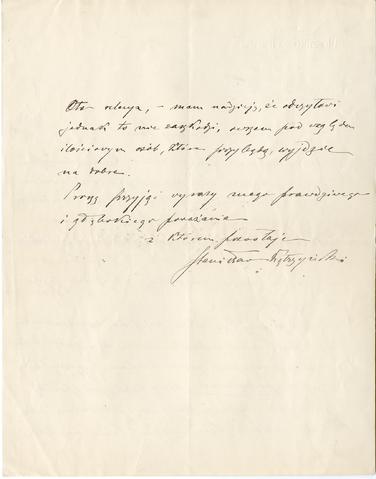 Oto relacya, – mam nadzieję, że odczytowi
jednak to nie zaszkodzi, owszem pod względem
ilościowym osób, które przybędą, wyjdzie
na dobre.
Proszę przyjąć wyrazy mego prawdziwego
i głębokiego poważania
z którem pozostaję
Stanisław